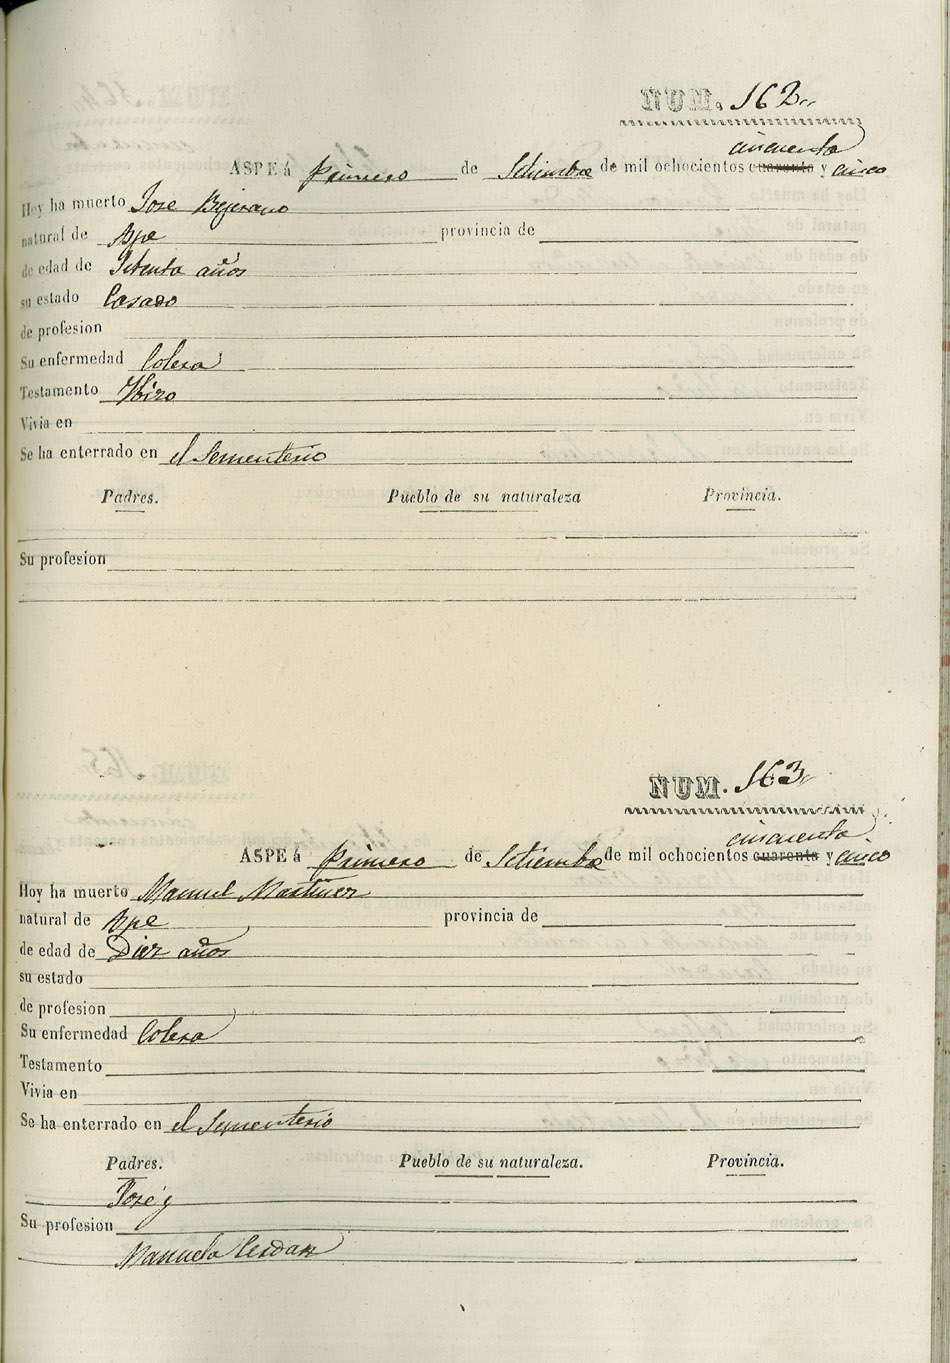 NUM. 162
cincuenta
ASPE á Primero de Setiembre de mil ochocientos cuarenta y cinco
Hoy ha muerto Jose Bejerano
natural de Aspe provincia de
de edad de Setenta años
su estado Casado
de profesion
Su enfermedad Colera
Testamento Hizo
Vivia en
Se ha enterrado en el Sementerio
Padres. Pueblo de su naturaleza Provincia.
Su profesion
NUM. 163
cincuenta
ASPE á Primero de Setiembre de mil ochocientos cuarenta y cinco
Hoy ha muerto Manuel Martinez
natural de Aspe provincia de
de edad de Diez años
su estado
de profesion
Su enfermedad Colera
Testamento
Vivia en
Se ha enterrado en el Sementerio
Padres. Pueblo de su naturaleza. Provincia.
José y
Su profesion
Manuela Cerdan